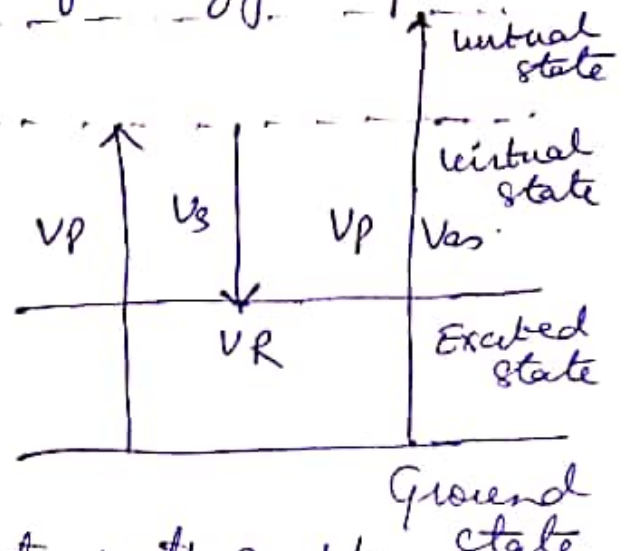 virtual
state
virtual
state
VP
Vs
VP
Vas.
VR
Excited
state
Ground
state